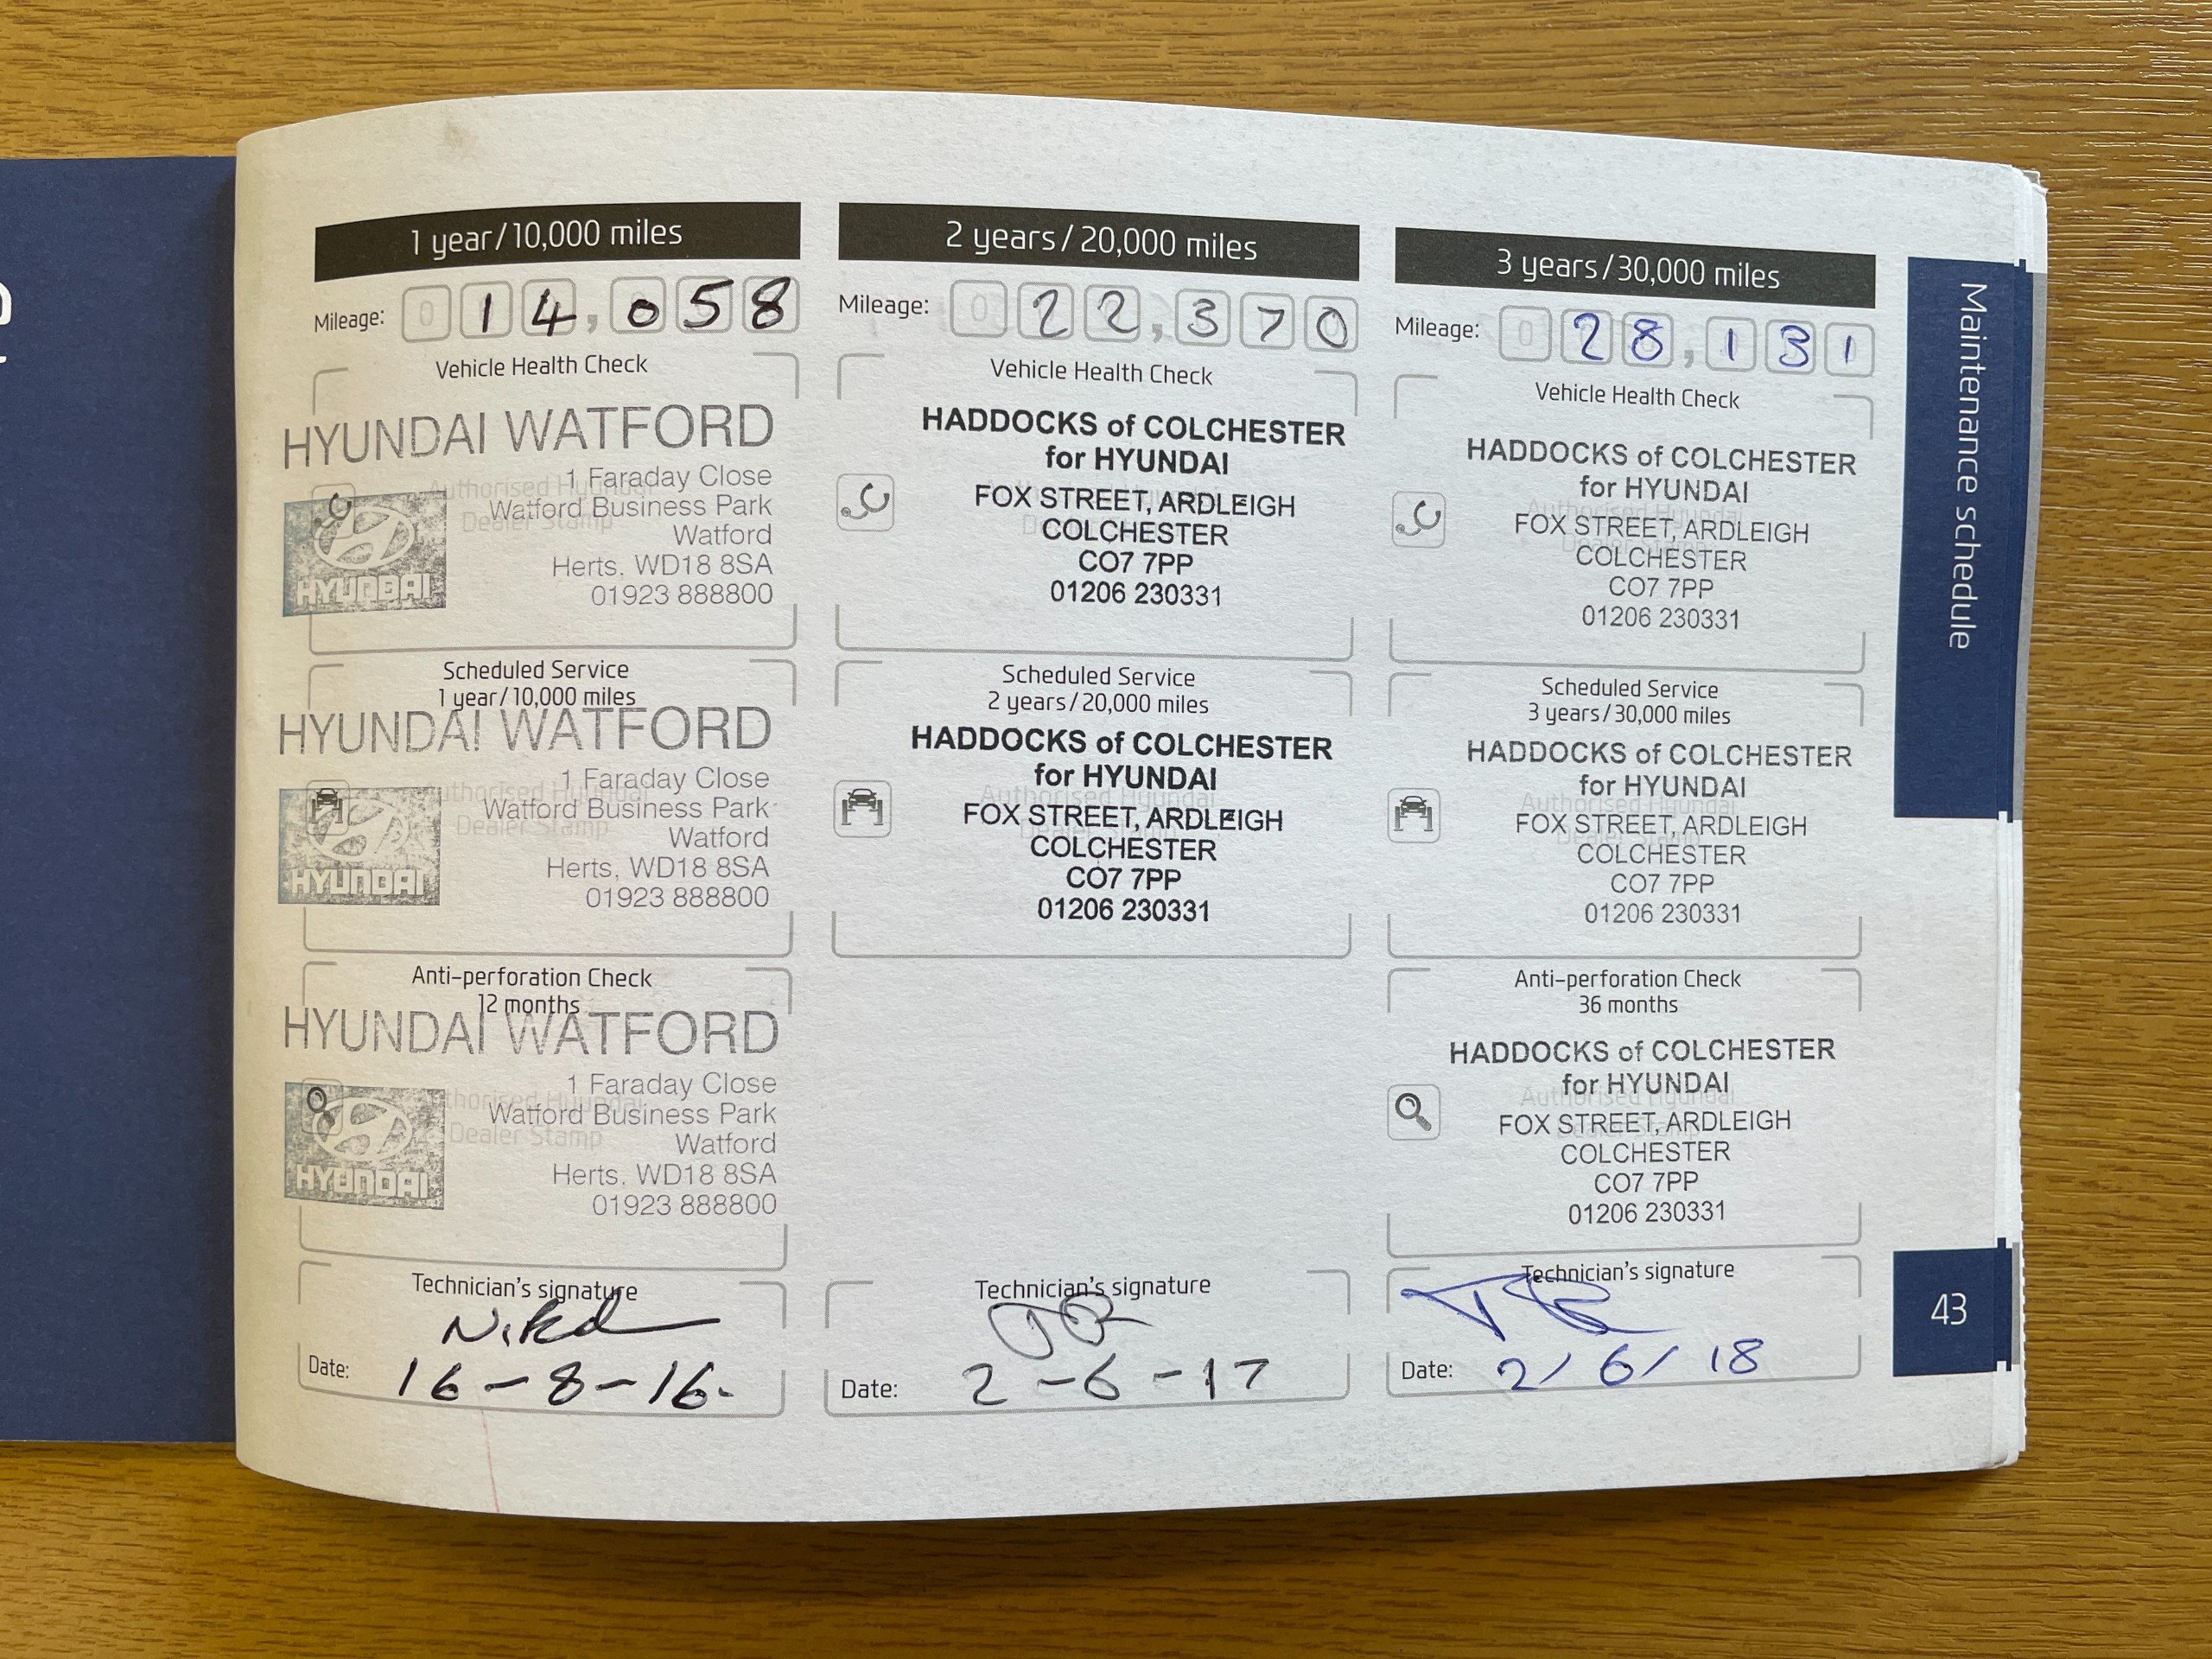 1 year/10,000 miles
Mileage: 014,058
Vehicle Health Check
HYUNDAI WATFORD
1 Faraday Close
Watford Business Park
Watford
Herts, WD18 8SA
01923 888800
Authorised Hyundai
Dealer Stamp
HYUNDAI
Scheduled Service
1 year/10,000 miles
HYUNDAI WATFORD
1 Faraday Close
Watford Business Park
Watford
Herts, WD18 8SA
01923 888800
Authorised Hyundai
Dealer Stamp
HYUNDAI
Anti-perforation Check
12 months
HYUNDAI WATFORD
1 Faraday Close
Watford Business Park
Watford
Herts, WD18 8SA
01923 888800
Authorised Hyundai
Dealer Stamp
HYUNDAI
Technician's signature
Date: 16-8-16.
2 years/20,000 miles
Mileage: 022,370
Vehicle Health Check
HADDOCKS of COLCHESTER
for HYUNDAI
FOX STREET, ARDLEIGH
COLCHESTER
CO7 7PP
01206 230331
Scheduled Service
2 years/20,000 miles
HADDOCKS of COLCHESTER
for HYUNDAI
Authorised Hyundai
FOX STREET, ARDLEIGH
COLCHESTER
CO7 7PP
01206 230331
Technician's signature
Date: 2-6-17
3 years/30,000 miles
Mileage: 028,131
Vehicle Health Check
HADDOCKS of COLCHESTER
for HYUNDAI
Authorised Hyundai
FOX STREET, ARDLEIGH
Dealer Stamp
COLCHESTER
CO7 7PP
01206 230331
Scheduled Service
3 years/30,000 miles
HADDOCKS of COLCHESTER
for HYUNDAI
Authorised Hyundai
FOX STREET, ARDLEIGH
Dealer Stamp
COLCHESTER
CO7 7PP
01206 230331
Anti-perforation Check
36 months
HADDOCKS of COLCHESTER
for HYUNDAI
Authorised Hyundai
FOX STREET, ARDLEIGH
Dealer Stamp
COLCHESTER
CO7 7PP
01206 230331
Technician's signature
Date: 2/6/18
Maintenance schedule
43